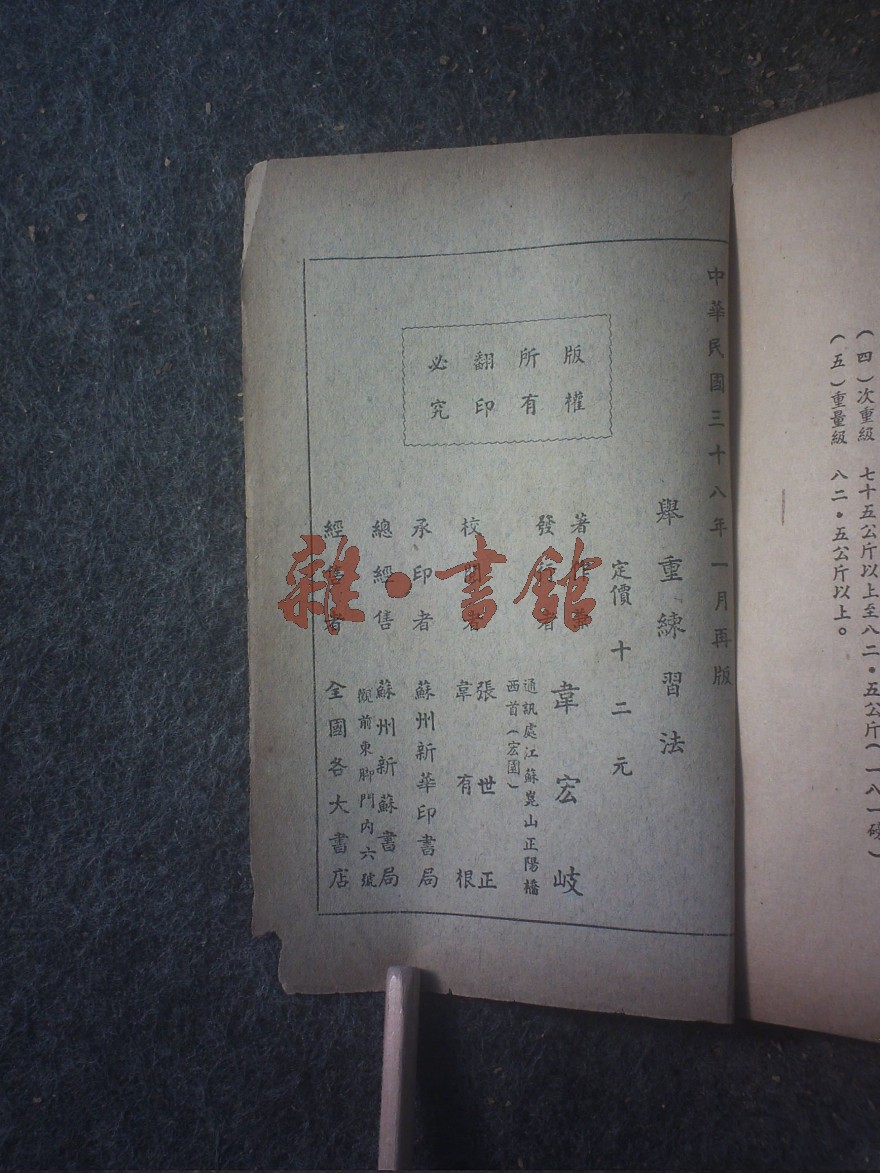 (四)次重級　七十五公斤以上至八二•五公斤(一八一磅)
(五)重量級　八二•五公斤以上。
中華民國三十八年一月再版
舉重練習法
定價十二元
版權
所有
翻印
必究
著作兼
發行者
韋宏岐
通訊處江蘇崑山正陽橋
西首(宏園)
校閱者
張世正
韋有根
承印者　蘇州新華印書局
總經售　蘇州新蘇書局
觀前東脚門內六號
經售者　全國各大書店
雜•書館